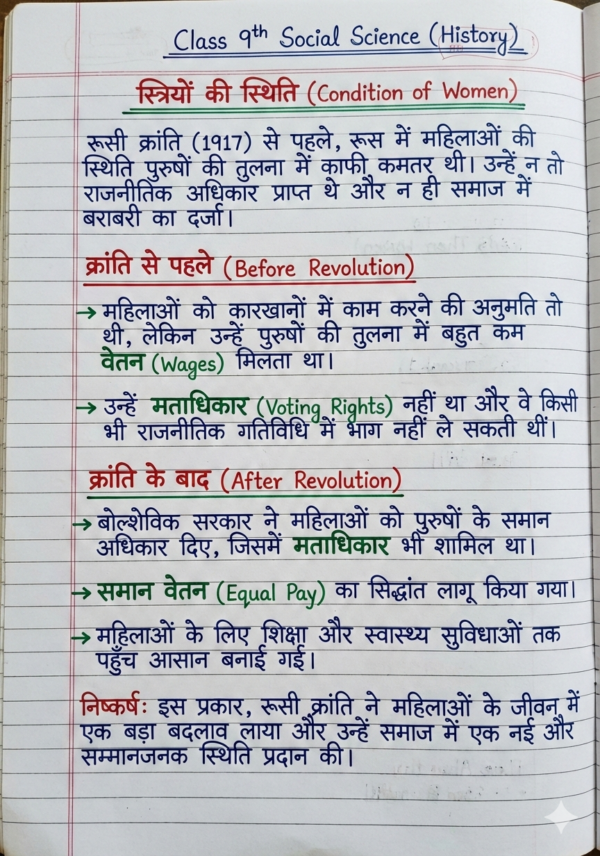 Class 9th Social Science (History)
स्त्रियों की स्थिति (Condition of Women)
रूसी क्रांति (1917) से पहले, रूस में महिलाओं की
स्थिति पुरुषों की तुलना में काफी कमतर थी। उन्हें न तो
राजनीतिक अधिकार प्राप्त थे और न ही समाज में
बराबरी का दर्जा।
क्रांति से पहले (Before Revolution)
→ महिलाओं को कारखानों में काम करने की अनुमति तो
थी, लेकिन उन्हें पुरुषों की तुलना में बहुत कम
वेतन (Wages) मिलता था।
→ उन्हें मताधिकार (Voting Rights) नहीं था और वे किसी
भी राजनीतिक गतिविधि में भाग नहीं ले सकती थीं।
क्रांति के बाद (After Revolution)
→ बोल्शेविक सरकार ने महिलाओं को पुरुषों के समान
अधिकार दिए, जिसमें मताधिकार भी शामिल था।
→ समान वेतन (Equal Pay) का सिद्धांत लागू किया गया।
→ महिलाओं के लिए शिक्षा और स्वास्थ्य सुविधाओं तक
पहुँच आसान बनाई गई।
निष्कर्ष: इस प्रकार, रूसी क्रांति ने महिलाओं के जीवन में
एक बड़ा बदलाव लाया और उन्हें समाज में एक नई और
सम्मानजनक स्थिति प्रदान की।